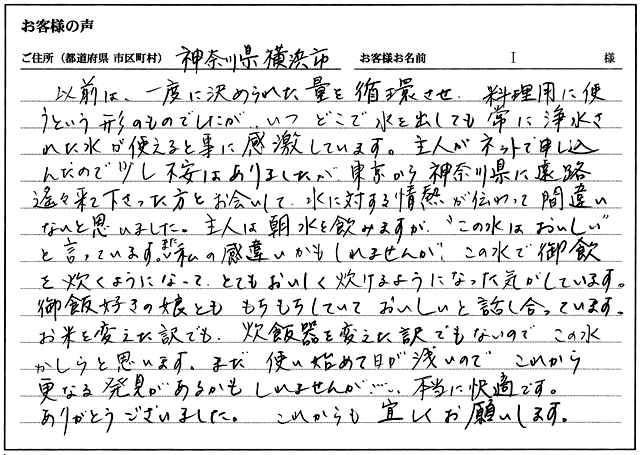 お客様の声
ご住所（都道府県 市区町村） 神奈川県横浜市 お客様お名前 I 様
以前は、一度に決められた量を循環させ、料理用に使
うという形のものでしたが、いつどこで水を出しても常に浄水さ
れた水が使えると事に感激しています。主人がネットで申し込
んだので少し不安はありましたが東京から神奈川県に遠路
遙々来て下さった方とお会いして、水に対する情熱が伝わって間違い
ないと思いました。主人は朝水を飲みますが、"この水はおいしい"
と言っています。また私の感違いかもしれませんが、この水で御飯
を炊くようになって、とてもおいしく炊けるようになった気がしています。
御飯好きの娘とも もちもちしていて おいしいと話し合っています。
お米を変えた訳でも、炊飯器を変えた訳でもないので この水
かしらと思います。まだ使い始めて日が浅いので これから
更なる発見があるかもしれませんが……、本当に快適です。
ありがとうございました。 これからも宜しくお願いします。